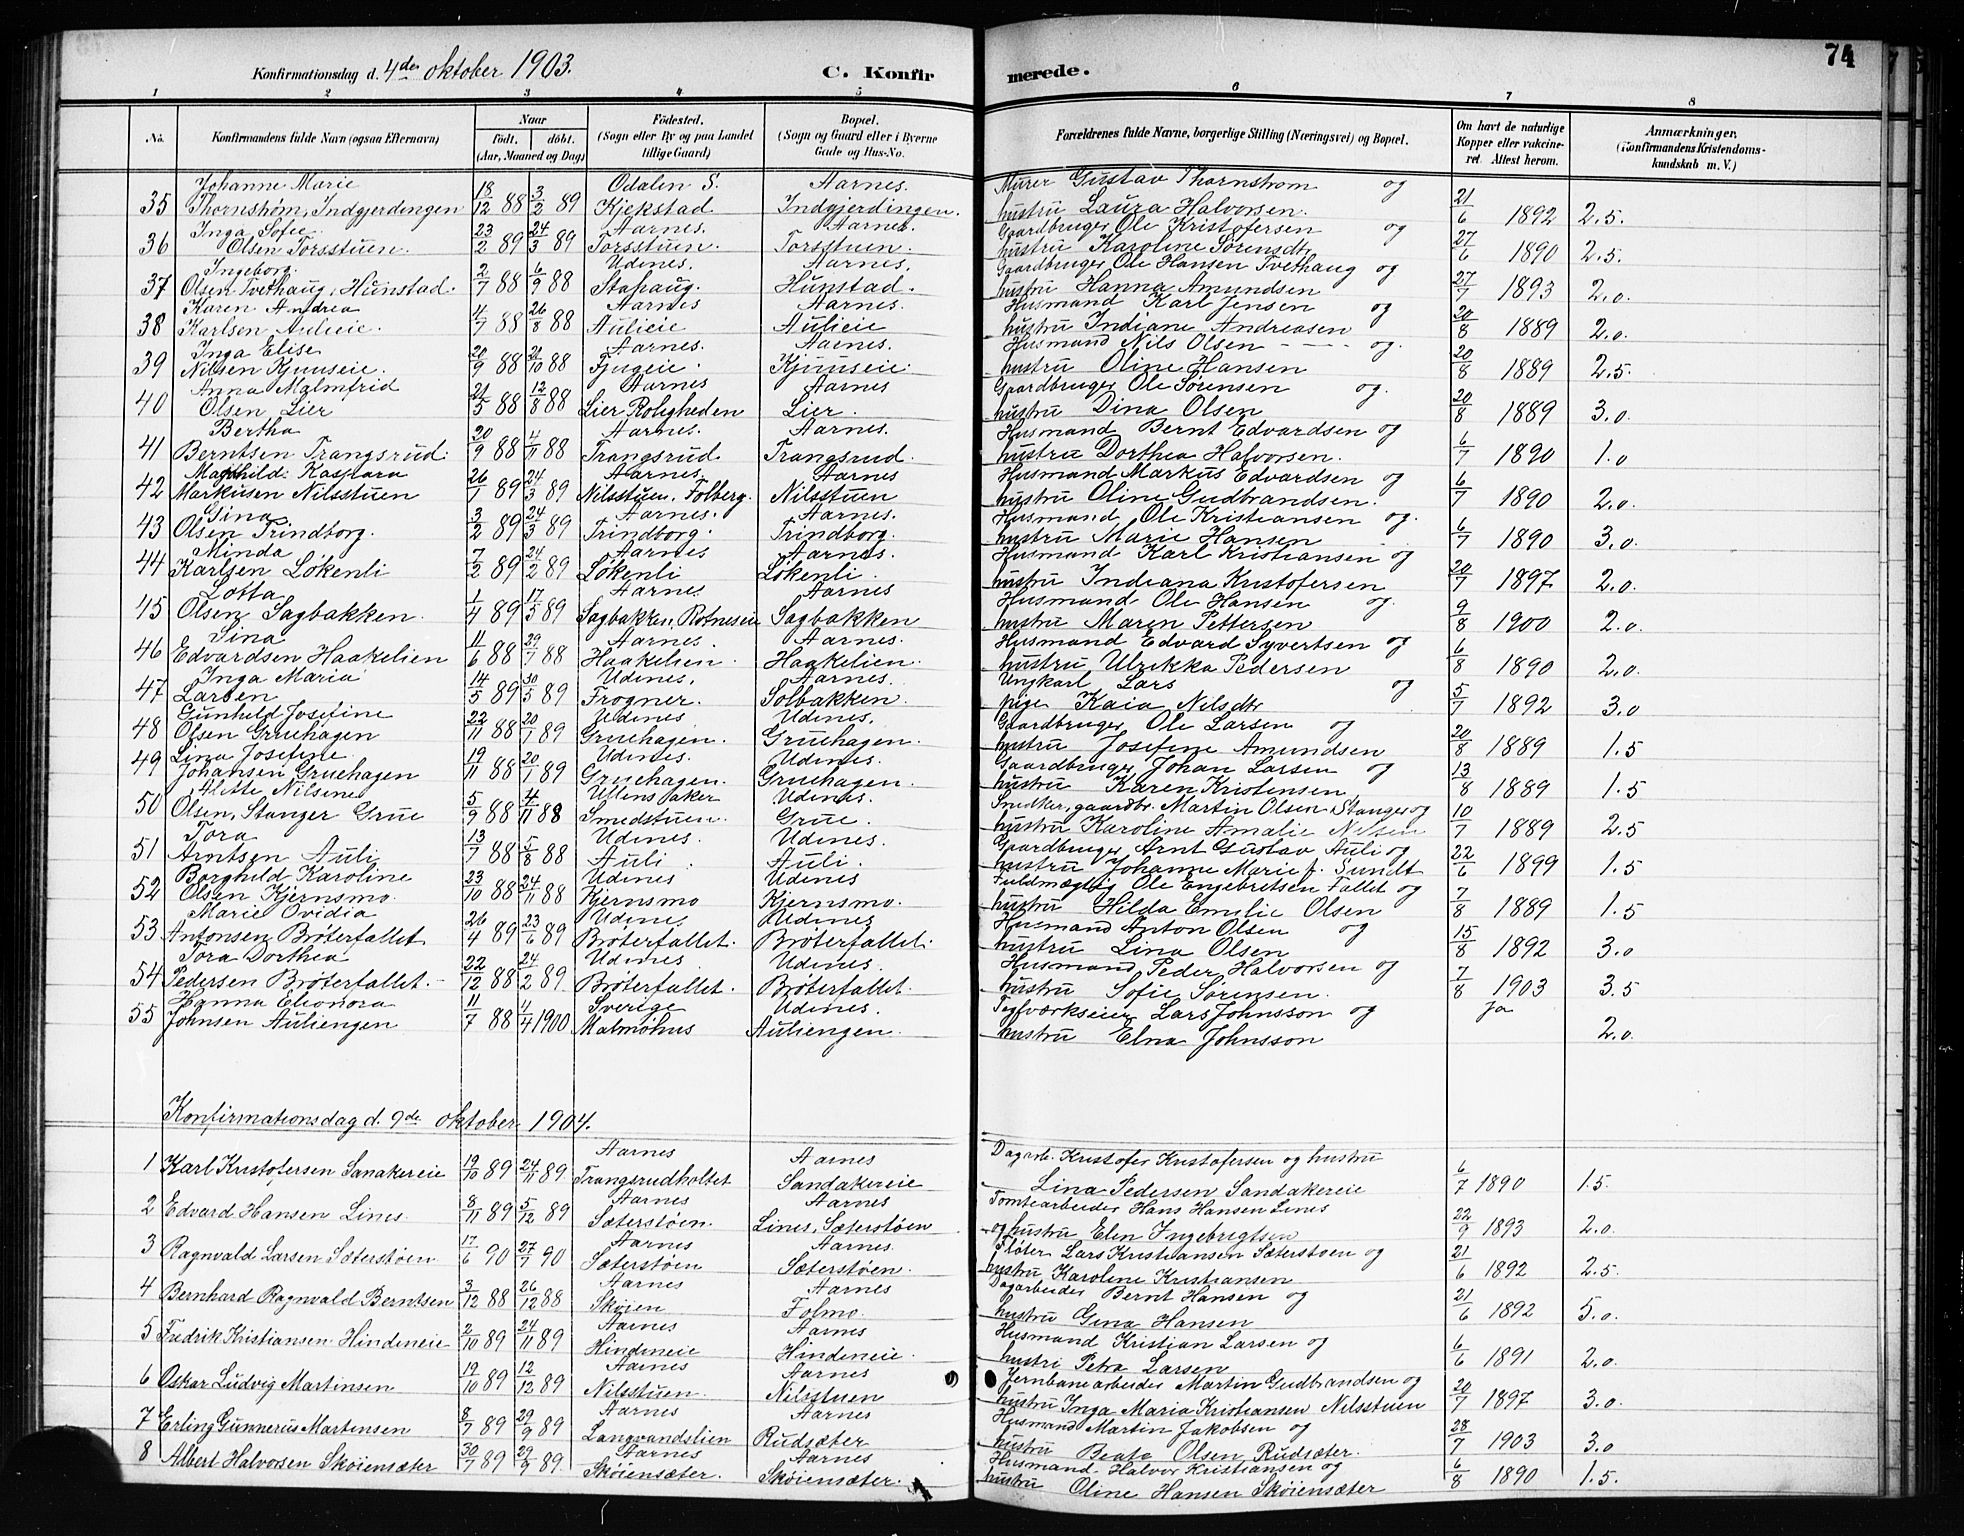 74
Konfirmationsdag d. 4de oktober 1903. C. Konfirmerede.
1 2 3 4 5 6 7 8
No. Konfirmandens fulde Navn (ogsaa Efternavn) Naar født. døbt. (Aar, Maaned og Dag) Fødested. (Sogn eller By og paa Landet tillige Gaard) Bopæl. (Sogn og Gaard eller i Byerne Gade og Hus-No. Forældrenes fulde Navne, borgerlige Stilling (Næringsvei) og Bopæl. Om havt de naturlige Kopper eller vakcineret. Attest herom. Anmærkninger. (Konfirmandens Kristendomskundskab m. V.)
Johanne Marie Odalen S. Aarnes. Murer Gustav Thornstrøm og
35 Thornstrøm, Indgjerdingen 18/12 88 3/2 89 Kjekstad Indgjerdingen. hustru Laura Halvorsen. 21/6 1892 2.5.
Inga Sofie Aarnes. Aarnes. Gaardbruger Ole Kristofersen og
36 Olsen Torsstuen. 23/2 89 24/3 89 Torsstuen. Torsstuen. hustru Karoline Sørensdtr 27/6 1890 2.5.
Ingeborg Udenes. Aarnes. Gaardbruger Ole Hansen Tvethaug og
37 Olsen Tvethaug, Hunstad. 2/7 88 6/9 88 Stahaug. Hunstad. hustru Hanna Amundsen 27/7 1893 2.0.
Karen Andrea Aarnes Aarnes. Husmand Karl Jensen og
38 Karlsen Aulieie. 4/7 88 26/8 88 Aulieie Aulieie hustru Indiane Andreasen 20/8 1889 2.0.
Inga Elise Aarnes. Aarnes. Husmand Nils Olsen og.
39 Nilsen Kjuuseie. 20/9 88 21/10 88 Fjugeie. Kjuuseie. hustru Oline Hansen 20/8 1889 2.5.
Anna Malmfrid Aarnes Aarnes Gaardbruger Ole Sørensen og.
40 Olsen Lier 21/5 88 12/8 88 Lier Roligheden Lier. hustru Dina Olsen 20/8 1889 3.0.
Bertha Aarnes. Aarnes. Husmand Bernt Edvardsen og
41 Berntsen Trangsrud. 20/9 88 4/11 88 Trangsrud. Trangsrud. hustru Dorthea Halvorsen. 6/7 1890 1.0
Mathild. Kaspara Aarnes. Aarnes Husmand Markus Edvardsen og
42 Markusen Nilsstuen 26/1 89 24/3 89 Nilsstuen, Tolberg. Nilsstuen hustru Oline Gudbrandsen. 6/7 1890 2.0.
Gina Aarnes. Aarnes. Husmand Ole Kristiansen og.
43 Olsen Trindborg. 3/2 89 24/3 89 Trindborg. Trindborg. hustru Marie Hansen 6/7 1890 3.0.
Minda Aarnes Aarnes. Husmand Karl Kristiansen og
44 Karlsen Løkenli 7/2 89 24/2 89 Løkenli Løkenli. hustru Indiana Kristofersen 20/7 1897 2.0.
Lotta Aarnes Aarnes Husmand Ole Hansen og.
45 Olsen Sagbakken. 1/4 89 17/5 89 Sagbakken, Rotneseie Sagbakken hustru Maren Pettersen 9/8 1900 2.0.
Sina Aarnes. Aarnes. Husmand Edvard Syvertsen og
46 Edvardsen Haakelien 11/6 88 29/7 88 Haakelien. Haakelien. hustru Ulrikka Pedersen 6/8 1890 2.0.
Inga Maria Udenes. Aarnes. Ungkarl Lars og
47 Larsen 14/5 89 30/5 89 Frogner. Solbakken. pige Kaia Nilsdtr 5/7 1892 3.0
Gunhild Josefine Udenes Udenes. Gaardbruger Ole Larsen og
48 Olsen Gruehagen 22/11 88 20/1 89 Gruehagen. Gruehagen. hustru Josefine Amundsen 20/8 1889 1.5
Lina Josefine Udenes. Udenes. Gaardbruger Johan Larsen og
49 Johansen Gruehagen 19/11 88 20/1 89 Gruehagen. Gruehagen. hustru Karen Kristensen 13/8 1889 1.5
Alette Nilsine Ullensaker Udenes. Snedker, gaardbr. Martin Olsen Stanger og
50 Olsen, Stanger Grue 5/9 88 4/11 88 Smedstuen. Grue. hustru Karoline Amalie Nilsen 10/7 1889 2.5
Tora Udenes. Udenes. Gaardbruger Arnt Gustav Auli og
51 Arntsen Auli 13/7 88 5/8 88 Auli. Auli. hustru Johanne Marie f. Sundt 22/6 1899 1.5
Borghild Karoline Udenes Udenes Fuldmægtig Ole Engebretsen Fallet og
52 Olsen Kjernsmo. 23/10 88 24/11 88 Kjernsmo Kjernsmo. hustru Hilda Emilie Olsen 7/8 1889 1.5
Marie Ovidia Udenes Udenes Husmand Anton Olsen og
53 Antonsen Brøterfallet 26/4 89 23/6 89 Brøterfallet. Brøterfallet. hustru Lina Olsen 15/8 1892 3.0
Tora Dorthea Udenes Udenes. Husmand Peder Halvorsen og
54 Pedersen Brøterfallet. 22/12 88 24/2 89 Brøterfallet. Brøterfallet. hustru Sofie Sørensen. 7/8 1903 3.5
Hanna Eleonora Sverige Udenes. Teglværkseier Lars Johnsson og Ja
55 Johnsen Auliengen 11/7 88 4/4 1900 Malmøhus Auliengen. hustru Elna Johnsson 2.0.
Konfirmationsdag d. 9de oktober 1904.
Aarnes Aarnes Dagarb. Kristofer Kristofersen og hustru
1 Karl Kristofersen Sanakereie 19/10 89 24/11 89 Trangsrudholtet Sandakereie Lina Pedersen Sandakereie 6/7 1890 1.5.
Aarnes Aarnes Tomtearbeider Hans Hansen Lines
2 Edvard Hansen Lines. 8/11 89 5/12 89 Sæterstøen. Lines, Sæterstøen og hustru Elen Ingebrigtsen 22/9 1893 2.0.
Aarnes Aarnes. Fløter Lars Kristiansen Sæterstøen og
3 Ragnvald Larsen Sæterstøen 17/6 90 27/7 90 Sæterstøen Sæterstøen. hustru Karoline Kristiansen 21/6 1892 2.5.
Aarnes Aarnes Dagarbeider Bernt Hansen og
4 Bernhard Ragnvald Berntsen 3/12 88 26/12 88 Skøien Folmo. hustru Gina Hansen 21/6 1892 5.0.
Aarnes Aarnes Husmand Kristian Larsen og
5 Fredrik Kristiansen Hindeneie 2/10 89 24/11 89 Hindeneie Hindeneie. hustru Petra Larsen 6/6 1891 2.0.
Aarnes Aarnes Jernbanearbeider Martin Gudbrandsen og
6 Oskar Ludvig Martinsen 19/10 89 12/12 89 Nilsstuen. Nilsstuen hustru Inga Maria Kristiansen Nilsstuen 20/7 1897 3.0.
Aarnes Aarnes Husmand Martin Jakobsen og
7 Erling Gunnerius Martensen 8/7 89 29/9 89 Langvandslien Rudsæter hustru Beate Olsen Rudsæter. 28/7 1903 3.0
Aarnes Aarnes Husmand Halvor Kristiansen og
8 Albert Halvorsen Skøiensæter 30/7 89 29/9 89. Skøiensæter. Skøiensæter. hustru Oline Hansen Skøiensæter 6/8 1890 1.5.